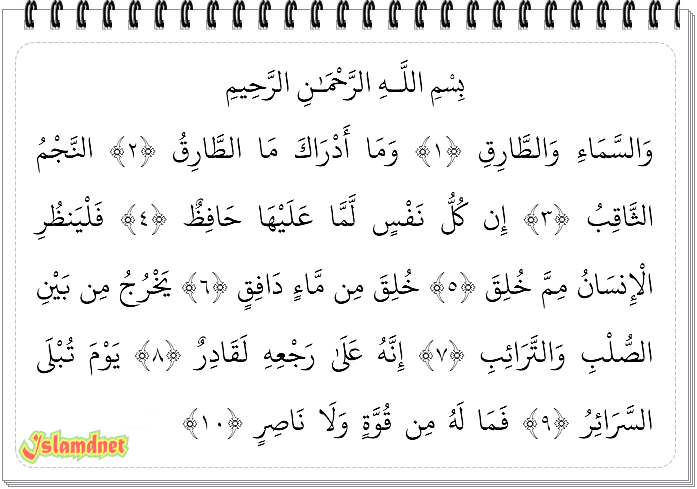 بِسْمِ اللَّـهِ الرَّحْمَـٰنِ الرَّحِيمِ
وَالسَّمَاءِ وَالطَّارِقِ ﴿١﴾ وَمَا أَدْرَاكَ مَا الطَّارِقُ ﴿٢﴾ النَّجْمُ
الثَّاقِبُ ﴿٣﴾ إِن كُلُّ نَفْسٍ لَّمَّا عَلَيْهَا حَافِظٌ ﴿٤﴾ فَلْيَنظُرِ
الْإِنسَانُ مِمَّ خُلِقَ ﴿٥﴾ خُلِقَ مِن مَّاءٍ دَافِقٍ ﴿٦﴾ يَخْرُجُ مِن بَيْنِ
الصُّلْبِ وَالتَّرَائِبِ ﴿٧﴾ إِنَّهُ عَلَىٰ رَجْعِهِ لَقَادِرٌ ﴿٨﴾ يَوْمَ تُبْلَى
السَّرَائِرُ ﴿٩﴾ فَمَا لَهُ مِن قُوَّةٍ وَلَا نَاصِرٍ ﴿١٠﴾
Islamdnet